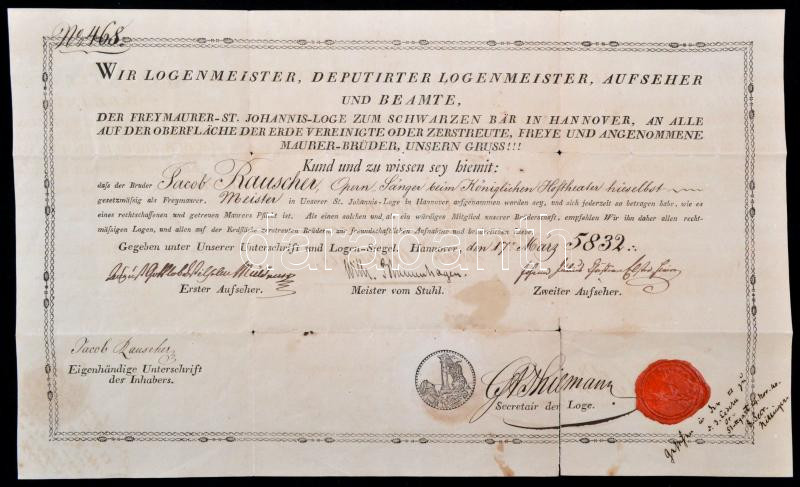 No 468.
WIR LOGENMEISTER, DEPUTIRTER LOGENMEISTER, AUFSEHER
UND BEAMTE,
DER FREYMAURER-ST. JOHANNIS-LOGE ZUM SCHWARZEN BÄR IN HANNOVER, AN ALLE
AUF DER OBERFLÄCHE DER ERDE VEREINIGTE ODER ZERSTREUTE, FREYE UND ANGENOMMENE
MAURER-BRÜDER, UNSERN GRUSS!!!
Kund und zu wissen sey hiemit:
daſs der Bruder Jacob Rauscher, Opern Sänger beim Königlichen Hoftheater hieselbst
gesetzmäſsig als Freymaurer. Meister in Unserer St. Johannis-Loge in Hannover aufgenommen worden sey, und sich jederzeit so betragen habe, wie es
eines rechtschaffenen und getreuen Maurers Pflicht ist. Als einen solchen und als ein würdiges Mitglied unserer Brüderschaft, empfehlen Wir ihn daher allen recht-
mäſsigen Logen, und allen auf der Erdfläche zerstreuten Brüdern zur freundschaftlichen Aufnahme und
Gegeben unter Unserer Unterschrift und Logen-Siegel. Hannover, den 17n März 5832.
Wilh.
Erster Aufseher. Meister vom Stuhl. Zweiter Aufseher.
Jacob Rauscher
Eigenhändige Unterschrift
des Inhabers.
Thiemann
Secretair der Loge.
darabanth